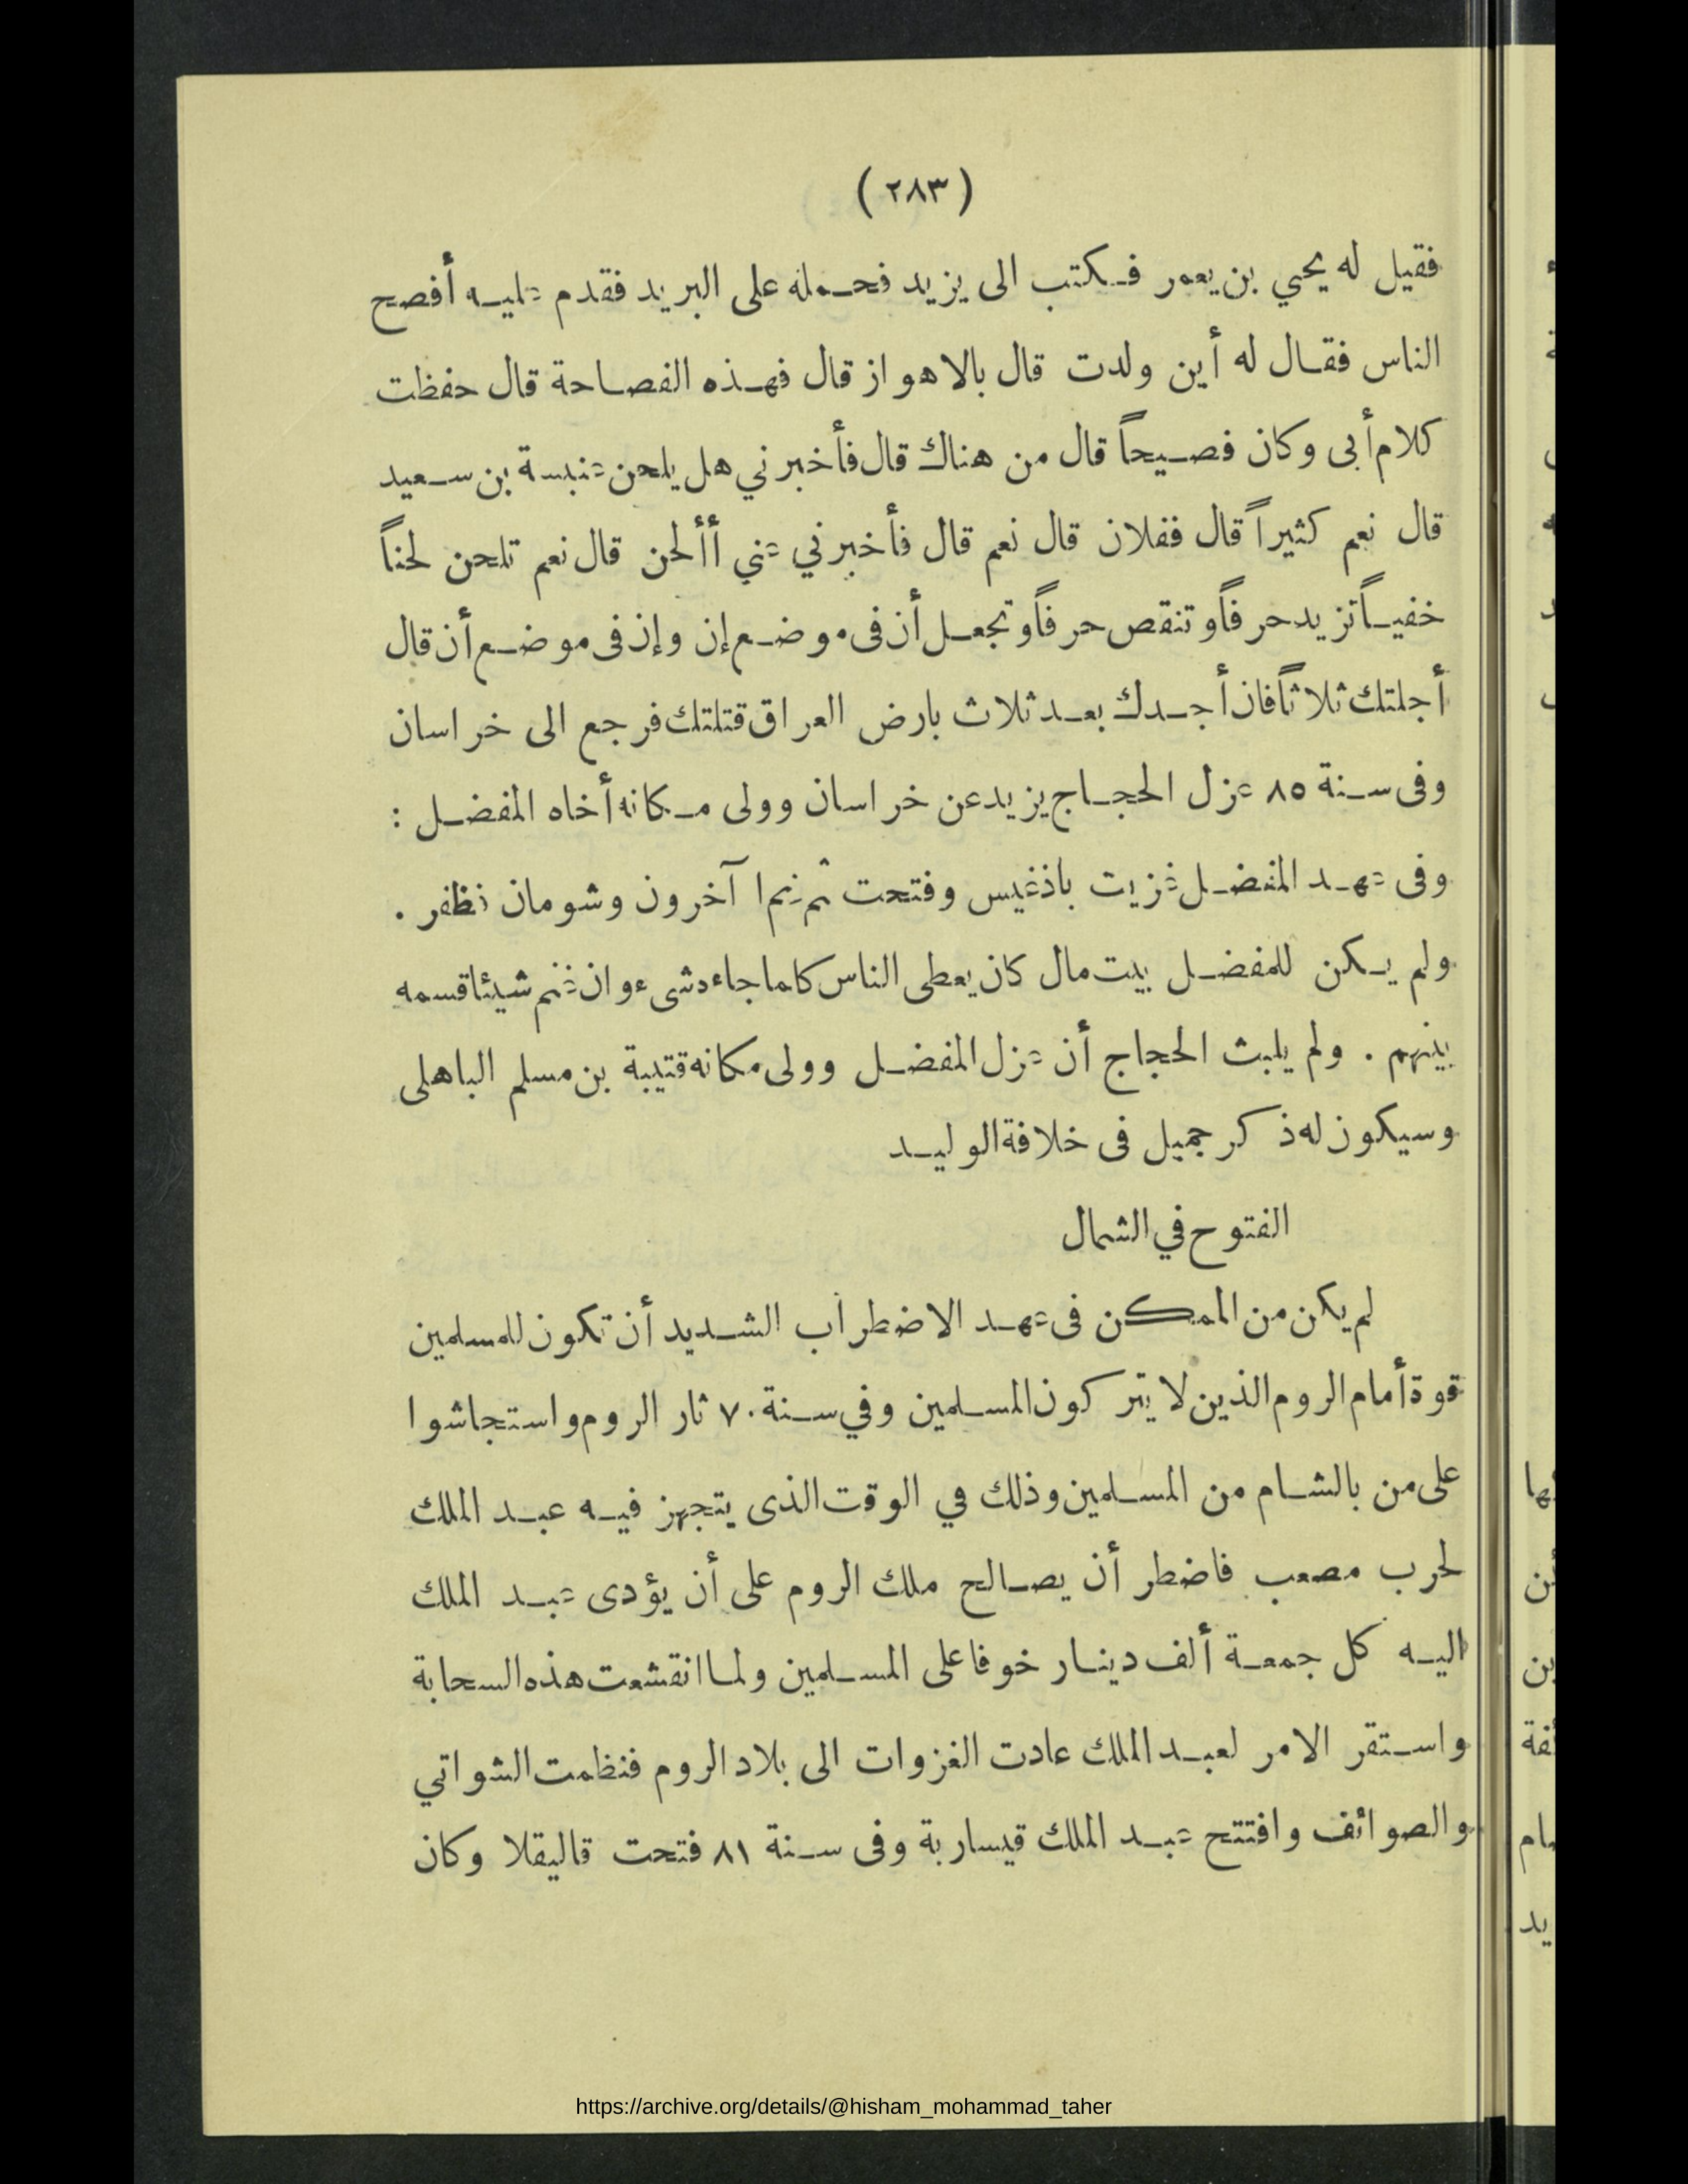 (٢٨٣)
فقيل له يحيي بن يعمر فكتب الى يزيد فحمله على البريد فقدم عليه أفصح
الناس فقال له أين ولدت قال بالاهواز قال فهذه الفصاحة قال حفظت
كلام أبى وكان فصيحاً قال من هناك قال فأخبرني هل يلحن عنبسة بن سعيد
قال نعم كثيراً قال ففلان قال نعم قال فأخبرني عني أألحن قال نعم تلحن لحناً
خفياً تزيد حرفاً وتنقص حرفاً وتجعل أن فى موضع إن وإن فى موضع أن قال
أجلتك ثلاثاً فان أجدك بعد ثلاث بارض العراق قتلتك فرجع الى خراسان
وفى سنة ٨٥ عزل الحجاج يزيد عن خراسان وولى مكانه أخاه المفضل :
وفى عهد المفضل غزيت باذغيس وفتحت ثم غنم آخرون وشومان فظفر .
ولم يكن للمفضل بيت مال كان يعطى الناس كلما جاءه شىء وان غنم شيئا قسمه
بينهم . ولم يلبث الحجاج أن عزل المفضل وولى مكانه قتيبة بن مسلم الباهلى
وسيكون له ذكر جميل فى خلافة الوليد
الفتوح في الشمال
لم يكن من الممكن فى عهد الاضطراب الشديد أن تكون للمسلمين
قوة أمام الروم الذين لا يتركون المسلمين وفي سنة ٧٠ ثار الروم واستجاشوا
على من بالشام من المسلمين وذلك في الوقت الذى يتجهز فيه عبد الملك
لحرب مصعب فاضطر أن يصالح ملك الروم على أن يؤدى عبد الملك
اليه كل جمعة ألف دينار خوفا على المسلمين ولما انقشعت هذه السحابة
واستقر الامر لعبد الملك عادت الغزوات الى بلاد الروم فنظمت الشواتي
والصوائف وافتتح عبد الملك قيسارية وفى سنة ٨١ فتحت قاليقلا وكان
https://archive.org/details/@hisham_mohammad_taher